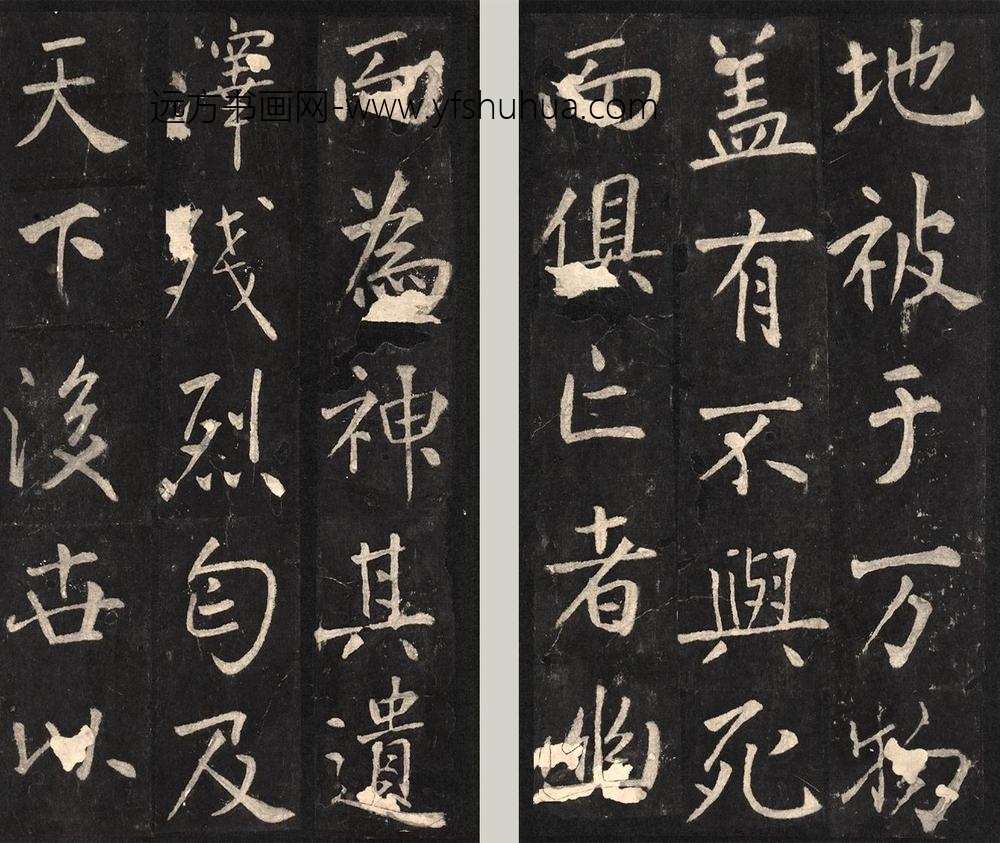 地被于万物
盖有不與死
而俱亡者幽
而為神其遺
澤残烈匀及
天下後世以
远方书画网-www.yfshuhua.com